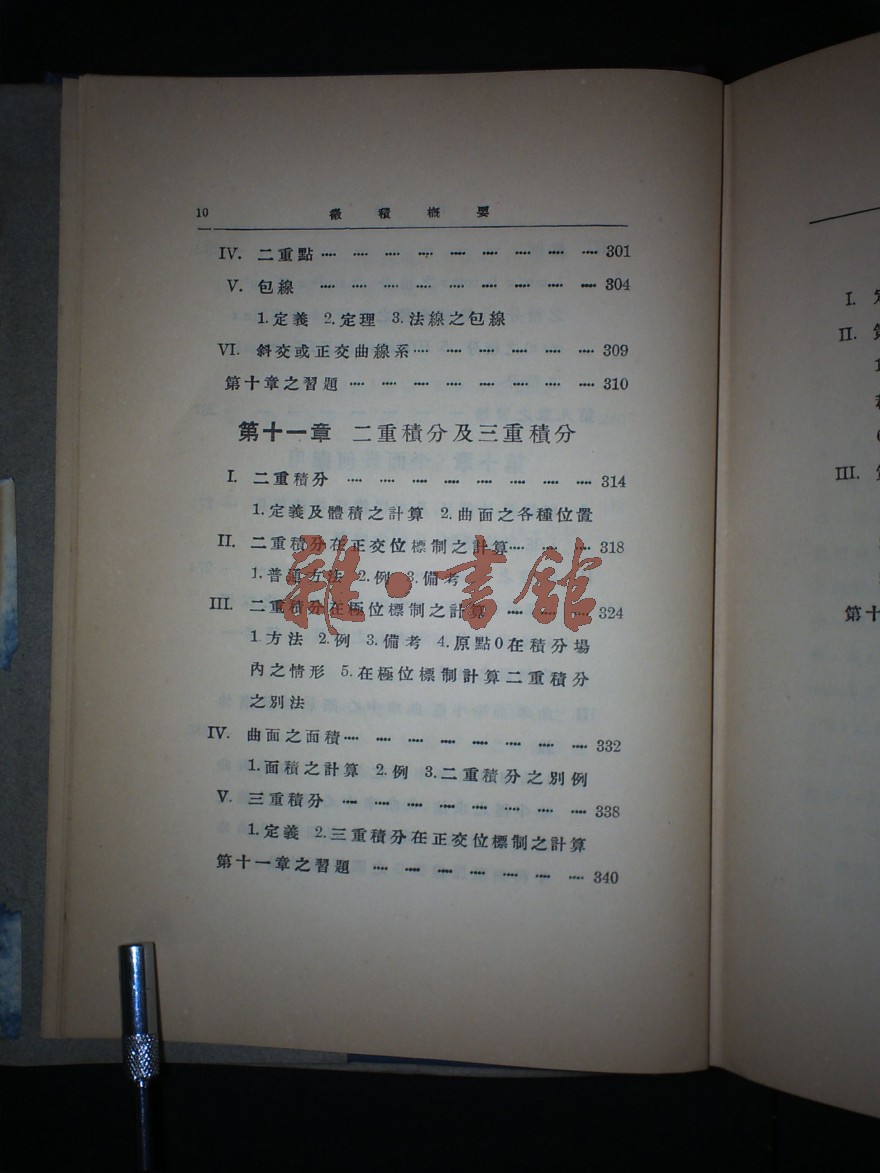 10 微積概要
IV. 二重點 ···· ···· ···· ···· ···· ···· ···· ···· ···· 301
V. 包線 ···· ···· ···· ···· ···· ···· ···· ···· ···· 304
1.定義 2.定理 3.法線之包線
VI. 斜交或正交曲線系···· ···· ···· ···· ···· ···· 309
第十章之習題 ···· ···· ···· ···· ···· ···· ···· ···· 310
第十一章 二重積分及三重積分
I. 二重積分 ···· ···· ···· ···· ···· ···· ···· ···· 314
1.定義及體積之計算 2.曲面之各種位置
II. 二重積分在正交位標制之計算···· ···· ···· 318
1.普通方法 2.例 3.備考
III. 二重積分在極位標制之計算 ···· ···· ···· 324
1.方法 2.例 3.備考 4.原點0在積分場
內之情形 5.在極位標制計算二重積分
之別法
IV. 曲面之面積···· ···· ···· ···· ···· ···· ···· ···· 332
1.面積之計算 2.例 3.二重積分之別例
V. 三重積分 ···· ···· ···· ···· ···· ···· ···· ···· 338
1.定義 2.三重積分在正交位標制之計算
第十一章之習題 ···· ···· ···· ···· ···· ···· ···· 340
雜·書館
I. 定
II.
III.
第十